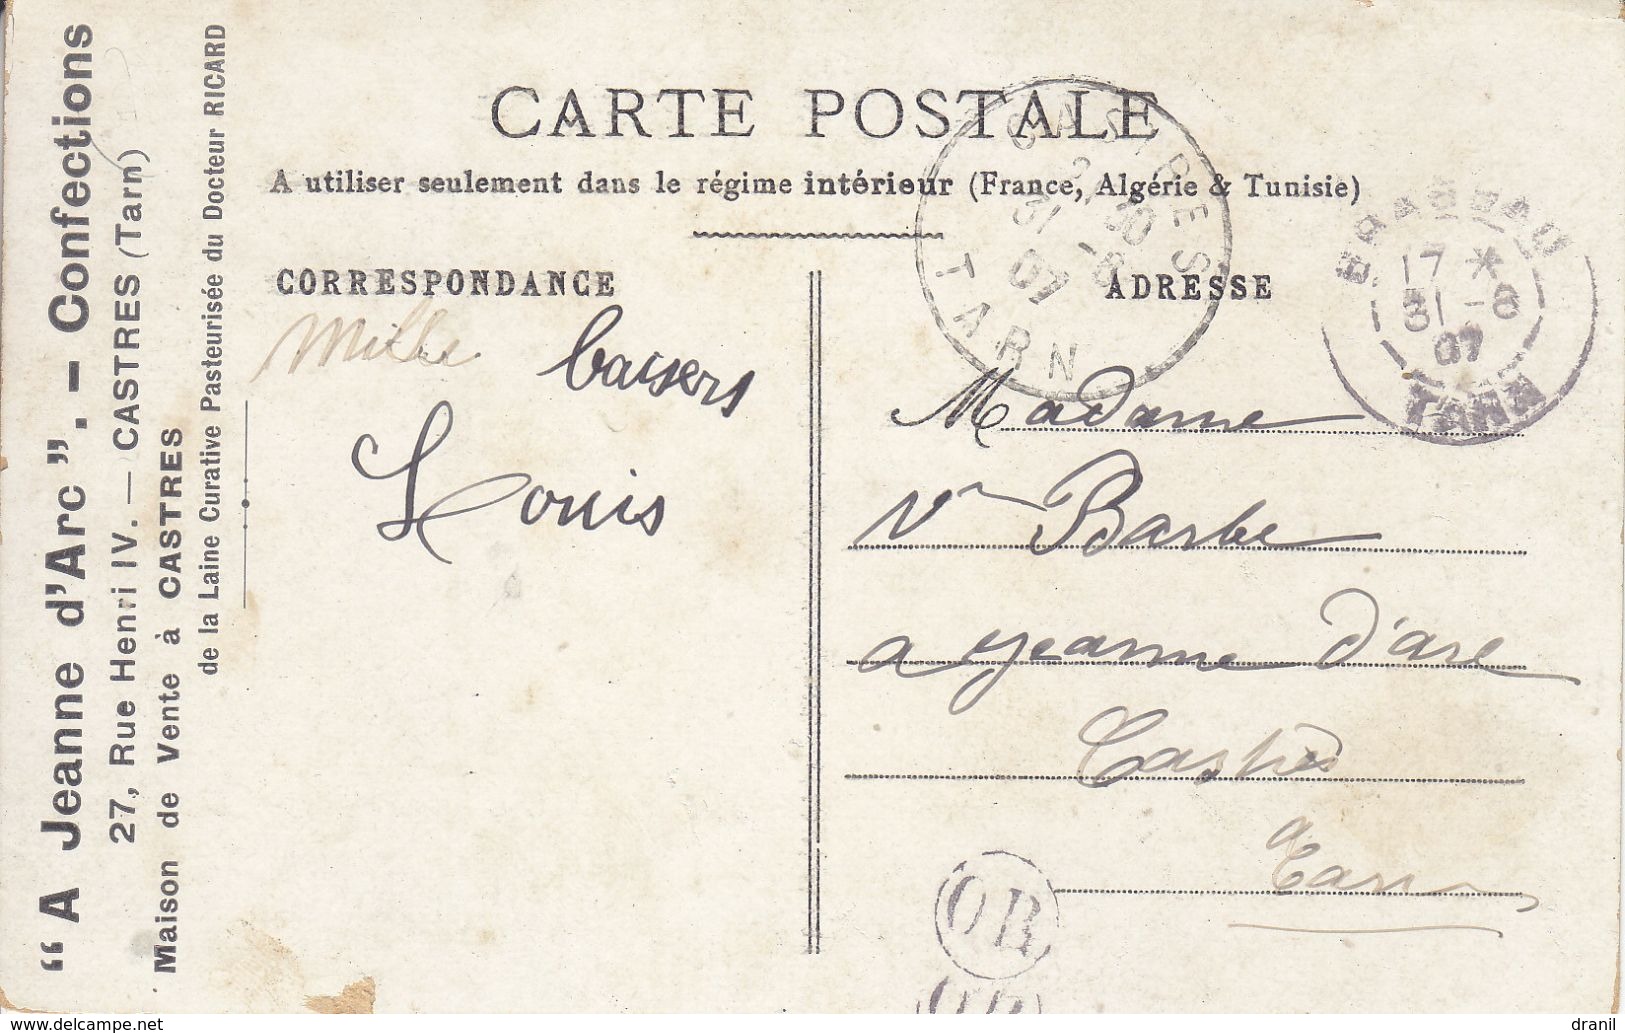 “A Jeanne d'Arc”. — Confections
27, Rue Henri IV. — CASTRES (Tarn)
Maison de Vente à CASTRES
de la Laine Curative Pasteurisée du Docteur RICARD
CARTE POSTALE
A utiliser seulement dans le régime intérieur (France, Algérie & Tunisie)
CORRESPONDANCE
Mille baisers
Louis
ADRESSE
Madame
Vve Barbe
a Jeanne d'arc
Castres
Tarn
CASTRES
31 -8
07
TARN
17 *
31 -8
07
TARN
OR
www.delcampe.net
dranil